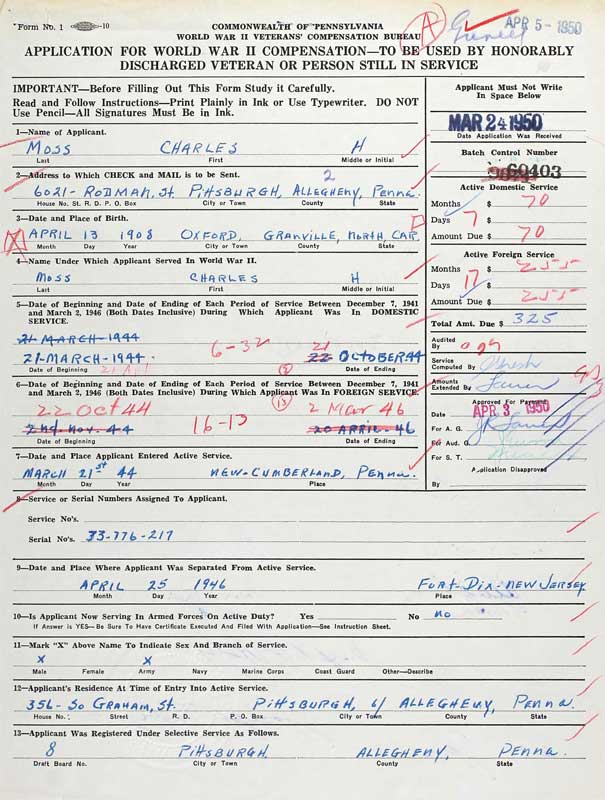 Form No. 1 -10
COMMONWEALTH OF PENNSYLVANIA
WORLD WAR II VETERANS' COMPENSATION BUREAU
A
APR 5 - 1950
APPLICATION FOR WORLD WAR II COMPENSATION—TO BE USED BY HONORABLY
DISCHARGED VETERAN OR PERSON STILL IN SERVICE
IMPORTANT—Before Filling Out This Form Study it Carefully.
Read and Follow Instructions—Print Plainly in Ink or Use Typewriter. DO NOT
Use Pencil—All Signatures Must Be in Ink.
1—Name of Applicant.
MOSS CHARLES H
Last First Middle or Initial
2—Address to Which CHECK and MAIL is to be Sent. 2
6021-RODMAN, St. PITTSBURGH, ALLEGHENY, PENNA.
House No. St. R. D. P. O. Box City or Town County State
3—Date and Place of Birth.
APRIL 13 1908 OXFORD, GRANVILLE, NORTH, CAR.
Month Day Year City or Town County State
4—Name Under Which Applicant Served In World War II.
MOSS CHARLES H
Last First Middle or Initial
5—Date of Beginning and Date of Ending of Each Period of Service Between December 7, 1941
and March 2, 1946 (Both Dates Inclusive) During Which Applicant Was In DOMESTIC
SERVICE.
21-MARCH-1944
21-MARCH-1944 6-32 21 22 OCTOBER 44
Date of Beginning Date of Ending
6—Date of Beginning and Date of Ending of Each Period of Service Between December 7, 1941
and March 2, 1946 (Both Dates Inclusive) During Which Applicant Was In FOREIGN SERVICE.
22 Oct 44 16-13 2 Mar 46
2nd. NOV. 44 20 APRIL-46
Date of Beginning Date of Ending
7—Date and Place Applicant Entered Active Service.
MARCH 21st 44 NEW-CUMBERLAND, PENNA.
Month Day Year Place
8—Service or Serial Numbers Assigned To Applicant.
Service No's.
Serial No's. 33-776-217
9—Date and Place Where Applicant Was Separated From Active Service.
APRIL 25 1946 FORT-DIX-NEW JERSEY
Month Day Year Place
10—Is Applicant Now Serving In Armed Forces On Active Duty? Yes No NO
If Answer is YES—Be Sure To Have Certificate Executed And Filed With Application—See Instruction Sheet.
11—Mark "X" Above Name To Indicate Sex And Branch of Service.
X X
Male Female Army Navy Marine Corps Coast Guard Other—Describe
12—Applicant's Residence At Time of Entry Into Active Service.
356-SO GRAHAM, St. PITTSBURGH, 6/ ALLEGHENY, PENNA.
House No. Street R. D. P. O. Box City or Town County State
13—Applicant Was Registered Under Selective Service As Follows.
8 PITTSBURGH. ALLEGHENY, PENNA.
Draft Board No. City or Town County State
Applicant Must Not Write
In Space Below
MAR 24 1950
Date Application Was Received
Batch Control Number
60403
Active Domestic Service
Months $ 70
Days 7 $
Amount Due $ 70
Active Foreign Service
Months $ 255
Days 17 $
Amount Due $ 255
Total Amt. Due $ 325
Audited
By
Service
Computed By
Amounts
Extended By
Approved For Payment
Date APR 3 1950
For A. G.
For Aud. G.
For S. T.
Application Disapproved
By